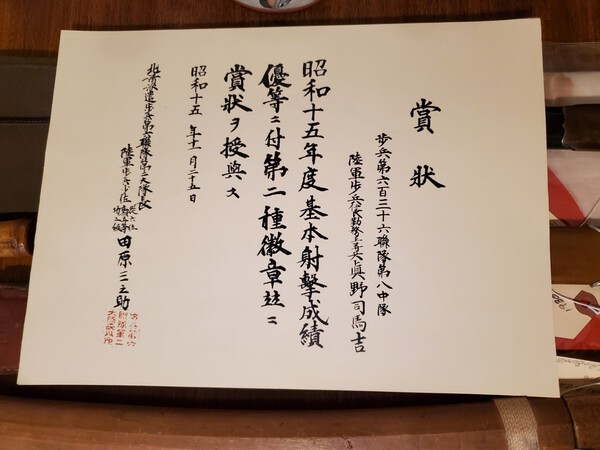 賞状
歩兵第六百三十六聯隊第八中隊
陸軍歩兵伍長勤務上等兵眞野司馬吉
昭和十五年度基本射撃成績
優等ニ付第二種徽章竝ニ
賞状ヲ授與ス
昭和十五年十一月二十五日
派遣歩兵第六聯隊第二大隊長
陸軍歩兵少佐 從六位 田原三之助